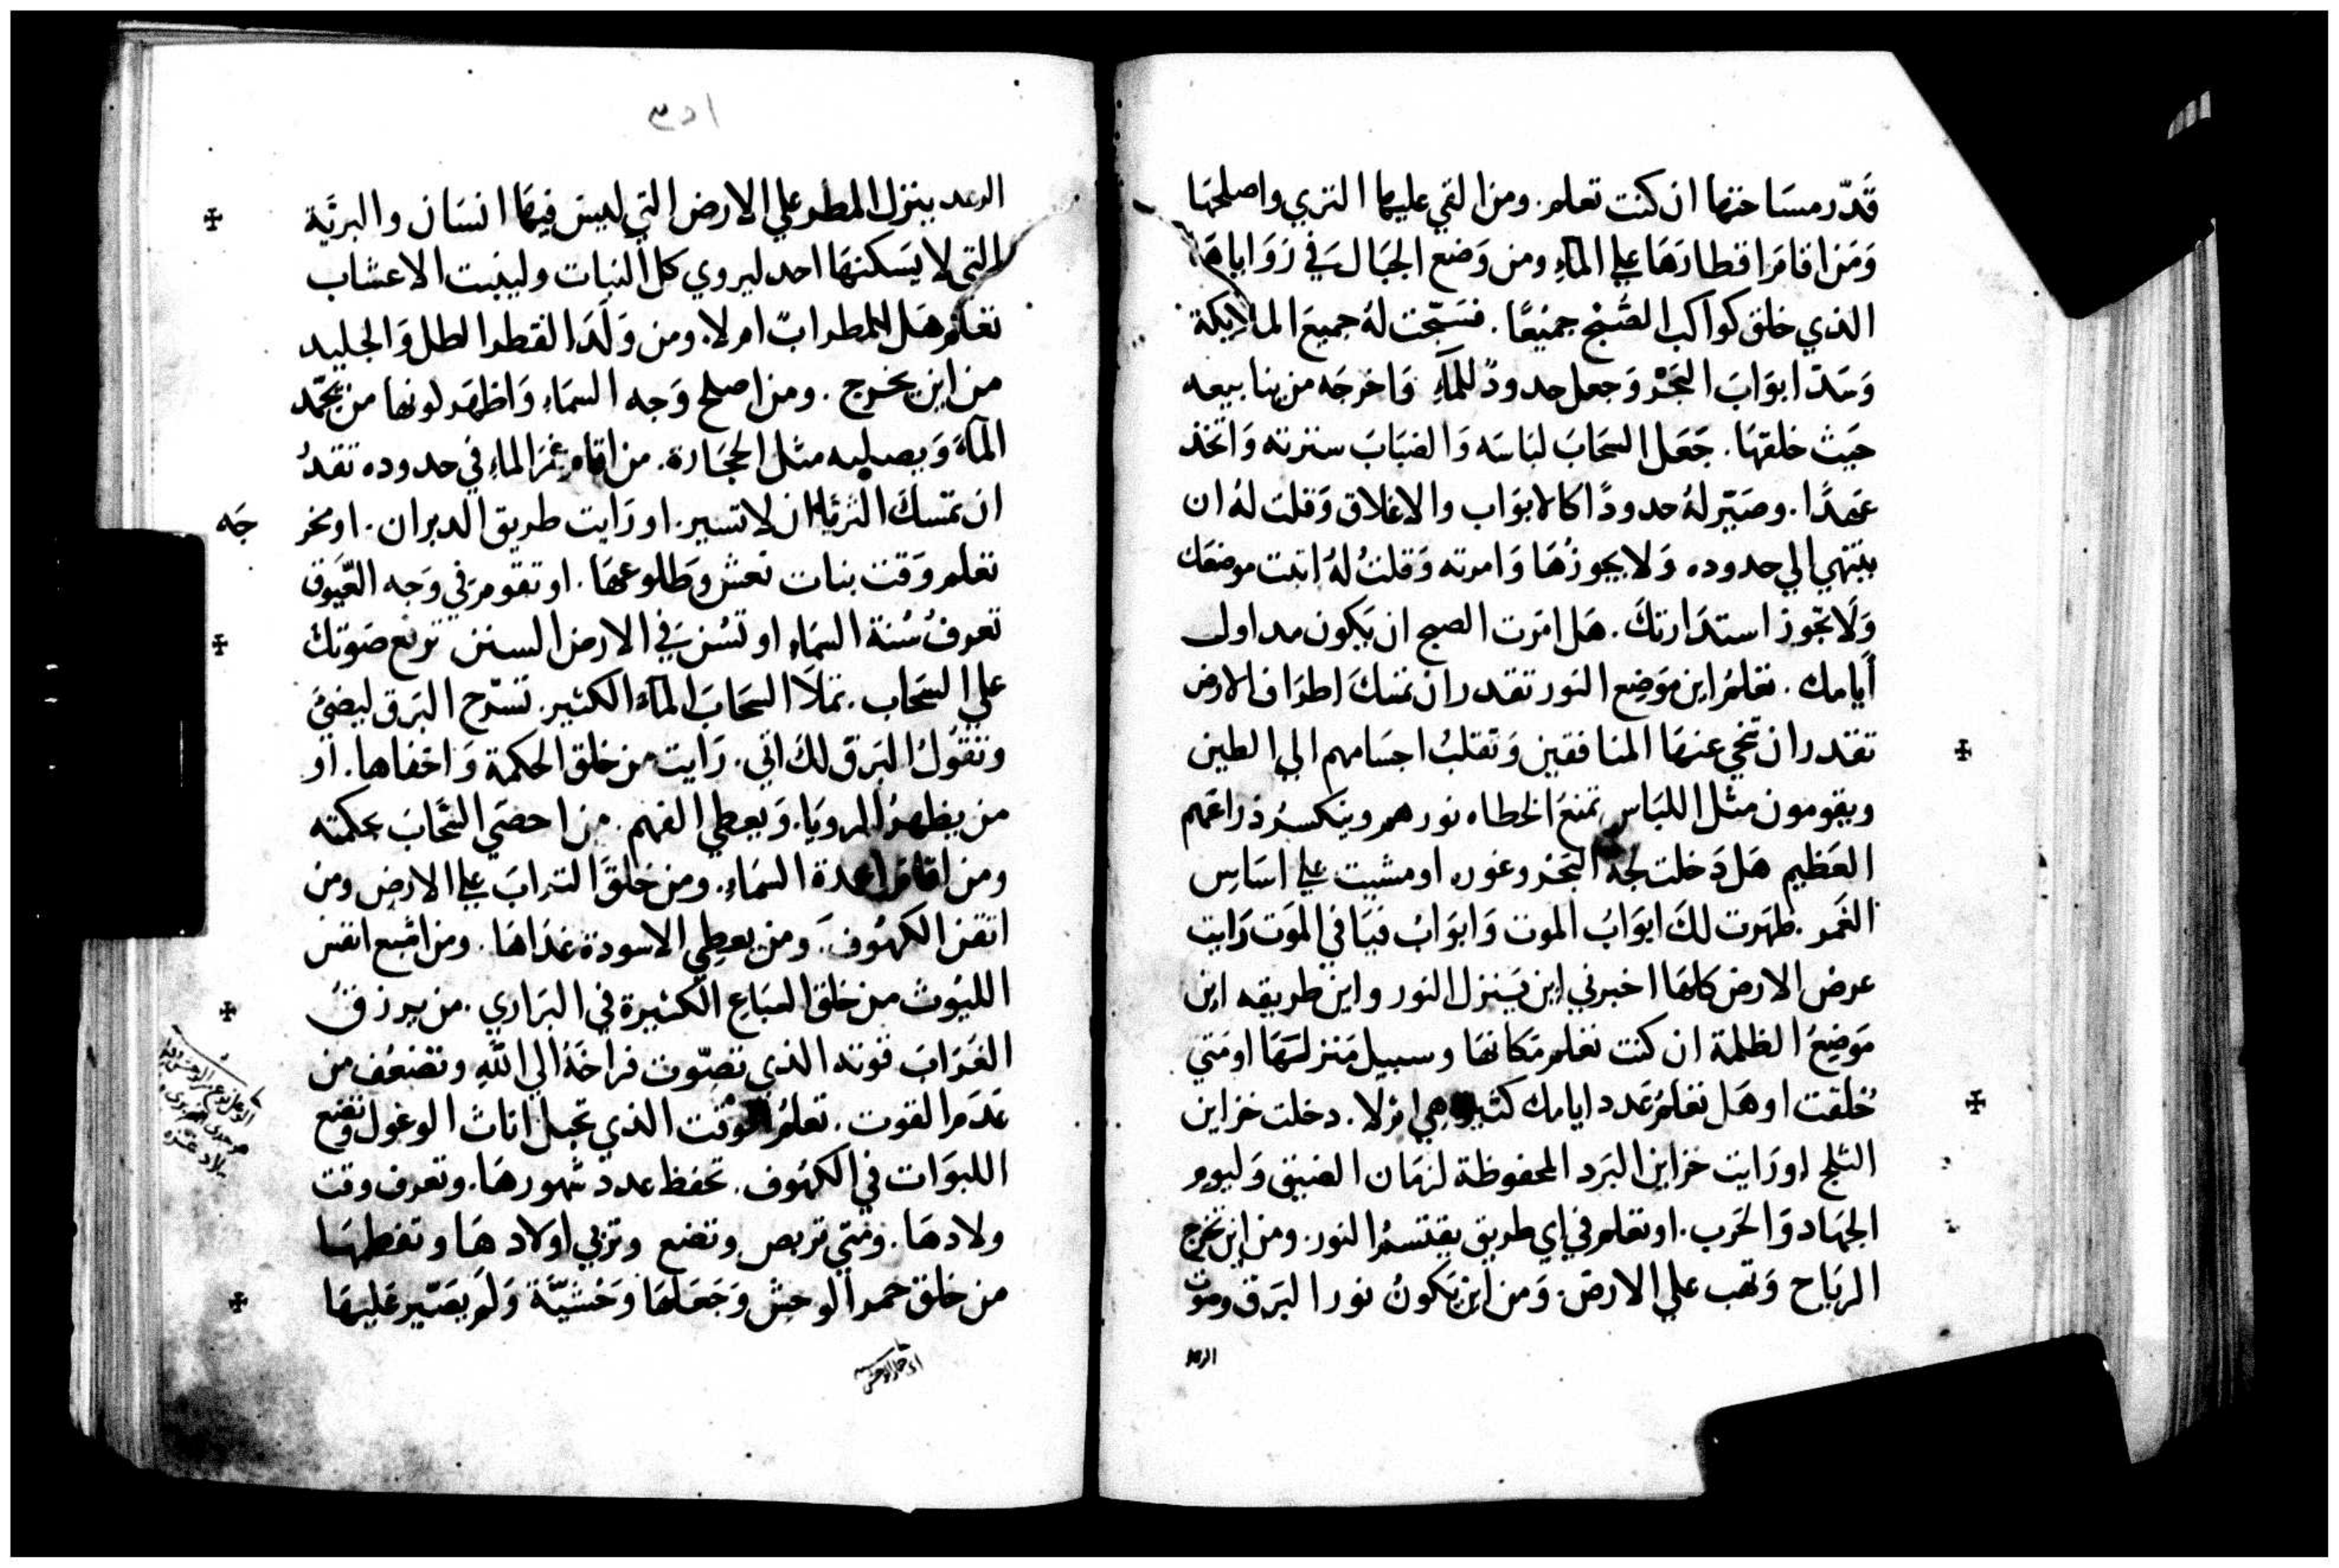 قَدّر مسَاحتها ان كنت تعلم. ومن القي عليها الثري واصلحهَا
وَمَن اقامَ اقطارَهَا علي المآءِ ومن وَضع الجبَال في زَوَاياهَا
الذي خلق كواكب الصُّبْح جميْعًا. فسَبّحت لهُ جميعَ الملايكة
وَسَدّ ابوَابَ البَحْر وَجعل حدودً للمآءِ وَاخرجَه من ينابيعه
حَيث خلقهَا. جَعَل السحَابَ لبَاسَه وَالضبَابَ سترته وَاتخذ
عَهدًا. وصَيّر لهُ حدودًا كالابوَاب والاغلاق وَقلت لهُ ان
ينتهي الي حدوده وَلا يجوزُهَا وَامرته وَقلتُ لهُ اثبت موضعَك
وَلَا تَجّوز استدَارتكَ. هَل امَرت الصبح ان يَكون مد اول
أَيامك. تعَلمُ اين مَوَضِع النَور تقدر ان تمسَكَ اطرَاف الارض
تقدر ان تنحي عنهَا المنافقين وَتقلبُ اجسَامهم الي الطين
ويقومون مثل اللبَاس تمنعَ الخطاه نورهم وينكسرُ ذراعَهم
العَظيم هَل دَخلت لجة البَحْر وغوره او مشيت علي اسَاس
الغَمر. ظهَرت لكَ ابوَابُ الموت وَابوَابُ في المَوت رَايت
عرض الارض كلهَا اخبرني اين يَنزل النور واين طريقه اين
مَوَضِعُ الظلمة ان كنت تعَلم مَكانهَا وسبيل مَنزلتهَا او مَتي
خُلقت او هَل تعَلمُ عَدد ايامك كثيرة هي امْ لا. دخلت خزاين
الثلج او رَايت خزاين البَرَد المحفوظة لزمَان الضيق وَليوم
الجهَاد وَالحَرب. او تعَلم في اي طريق يقتسمُ النور. ومن اين تخرج
الريَاح وَتهب علي الارض. وَمن اين يَكونُ نور البَرق وصوت
الرعد
١٥٣
الرعد ينزل المطر علي الارض التي ليس فيهَا انسَان والبريَّة
التي لا يسَكنهَا احد ليروي كل النبات ولينبت الاعشاب
تعَلم هَل للمطر ابّ امر لا. ومن وَلَدَ القطر الطل وَالجليد
من اين يخرج. ومن اصلح وَجه السمَاء وَاظهَر لونها من يجمّد
المآءَ وَيصلبه مثل الحجَارة. من اقام غمَر الماءِ في حدوده تقدُ
ان تمسَكَ الثريّا ان لا تسير. او رَايت طريق الدبران. او مخر
جَه
تعَلم وَقت بنات نعَش وَطلوعهَا. او تقوم في وَجه العَيوق
تعَرفُ سُنة السمَاءِ او تسُن في الارض السنن ترفع صَوتك
علي السحَاب. تملَأ السحَابَ المآءَ الكثير. تسَرّح البَرق ليضيَ
وتقوُلُ البَرق لكَ اني. رَايت من خلق الحكمة وَاخفاها. او
من يظهرُ المرويَا. وَيعطي الفهم. من احصَي السَّحَابَ بحكمته
ومن اقامَ اعمدة السمَاءِ. ومن خلقَ الترابَ علي الارض ومن
اتقن الكهُوف. ومن يعطي الاسودة غذَاهَا. ومن اشبع انفس
الليُوث من خلق السبَاعِ الكثيرة في البَراري. من يرزق
الغُرَابَ قوته الذي تصّوت فراخَهُ الي اللّه وتضعُف من
عَدَم القوت. تعَلمُ الوقت الذي تحبل اناث الوعول وتضع
اللبوَات في الكهُوف. تحَفظ عَدد شهورهَا. وتعرف وقت
ولادهَا. ومَتي تربص وتضع وتربي اولادهَا وتفطمهَا
من خلق حمر الوحش وَجَعَلهَا وَحْشيَّة وَلَم يصَيّر عَليهَا